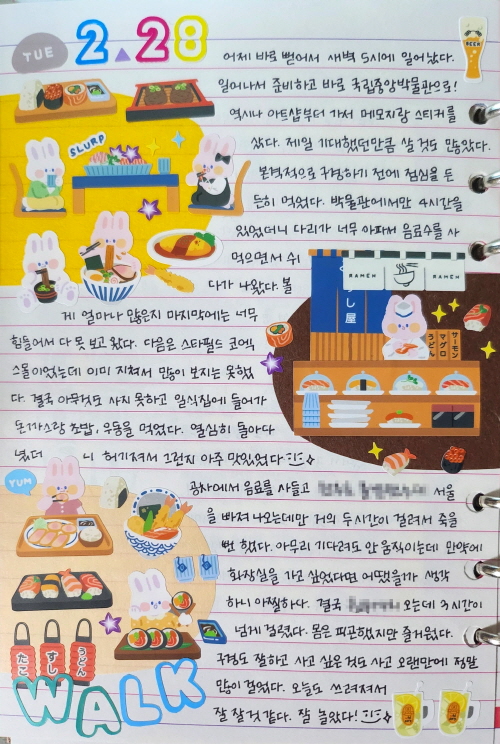 TUE
2.28
BEER
어제 바로 뻗어서 새벽 5시에 일어났다.
일어나서 준비하고 바로 국립중앙박물관으로!
역시나 아트샵부터 가서 메모지랑 스티커를
샀다. 제일 기대했던만큼 살 것도 많았다.
SLURP
본격적으로 구경하기 전에 점심을 든
든히 먹었다. 박물관에서만 4시간을
있었더니 다리가 너무 아파서 음료수를 사
먹으면서 쉬
다가 나왔다. 볼
게 얼마나 많은지 마지막에는 너무
힘들어서 다 못 보고 왔다. 다음은 스타필드 코엑
스몰이었는데 이미 지쳐서 많이 보지는 못했
다. 결국 아무것도 사지 못하고 일식집에 들어가
돈까스랑 초밥, 우동을 먹었다. 열심히 돌아다
녔더 니 허기져서 그런지 아주 맛있었다
RAMEN RAMEN
すし屋
うどん
マグロ
サーモン
YUM
공차에서 음료를 사들고 서울
을 빠져 나오는데만 거의 두시간이 걸려서 죽을
뻔 했다. 아무리 기다려도 안 움직이는데 만약에
화장실을 가고 싶었다면 어땠을까 생각
하니 아찔하다. 결국 오는데 3시간이
넘게 걸렸다. 몸은 피곤했지만 즐거웠다.
구경도 잘하고 사고 싶은 것도 사고 오랜만에 정말
많이 걸었다. 오늘도 쓰러져서
잘 잘 것 같다. 잘 놀았다!
たこ
すし
うどん
WALK